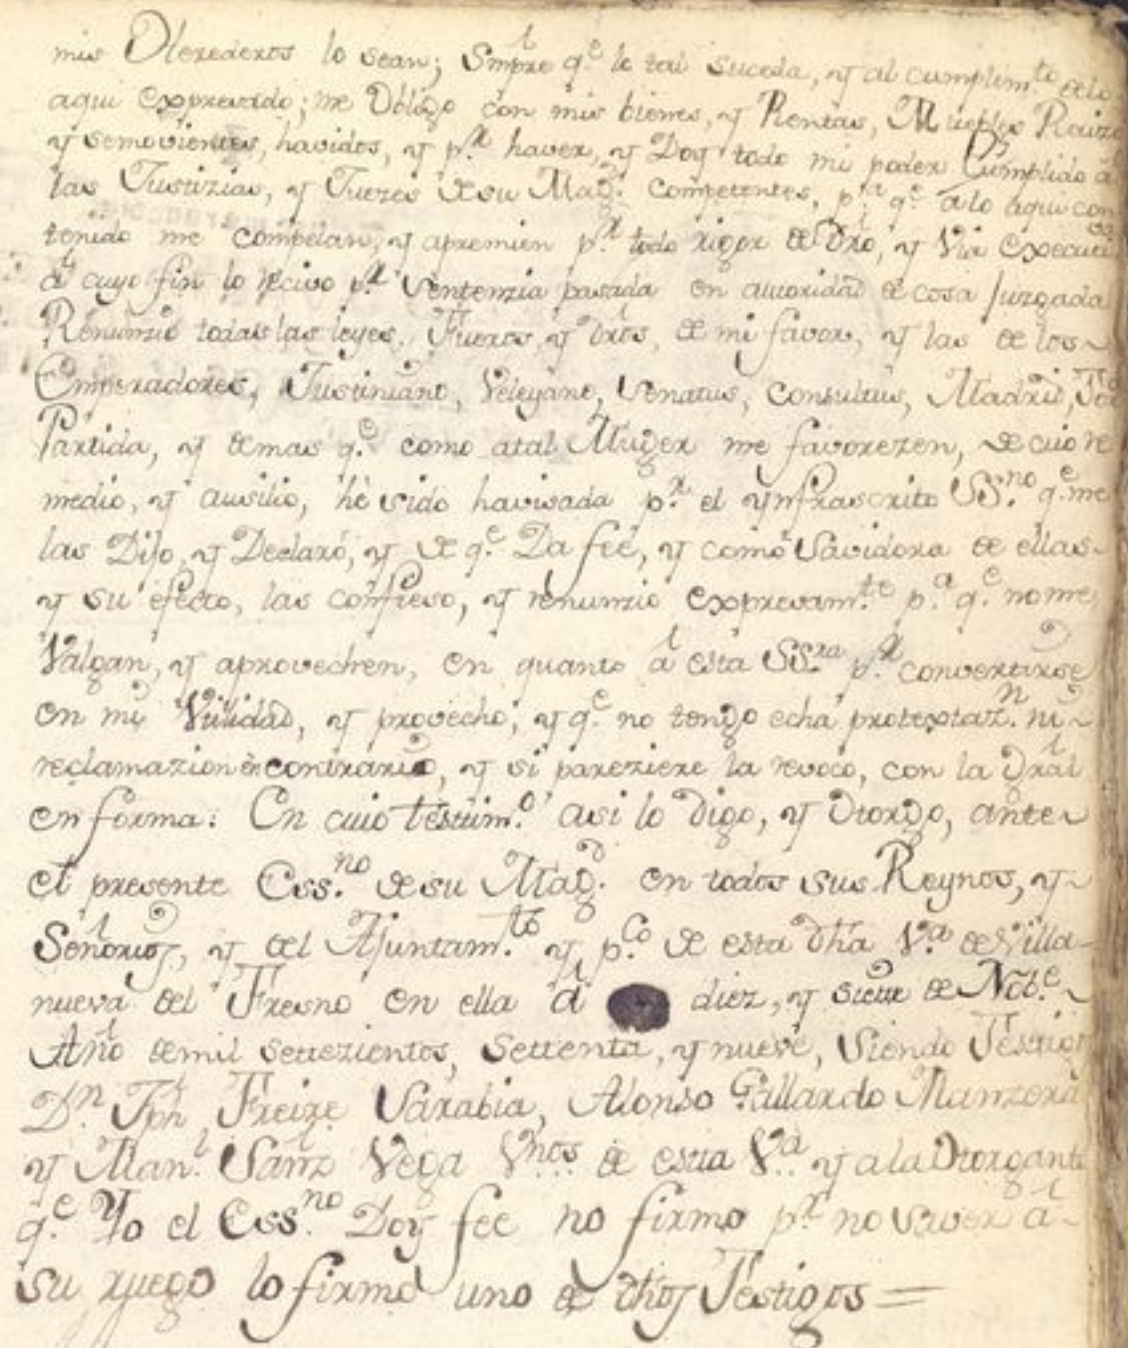 mis Herederos lo sean; Smpre q.e le tal suceda, y al cumplim.to de lo
aqui expresado; me Obligo con mis bienes, y Rentas, Muebles Raizes
y semovientes, havidos, y p.r haver, y Doy todo mi poder Cumplido á
las Justizias, y Juezes de su Mag.d competentes, p.a q.e a lo aqui con
tenido me compelan, y apremien p.r todo rigor de Dro, y Via executiva
á cuyo fin lo recivo p.r Sentenzia pasada en autoridad de cosa Juzgada
Renunzio todas las leyes, Fueros, y Dros, de mi favor, y las de los
Emperadores, Justiniano, Veleyano, Senatus, Consultus, Madrid, Toro
Partida, y demas q.e como atal Muger me favorezen, de cuio re
medio, y ausilio, hé sido havisada p.r el ynfrascrito SS.no q.e me
las Dijo, y Declaró, y de q.e Da fee, y como Savidora de ellas
y su efecto, las confieso, y renunzio expresam.te p.a q.e no me
Valgan, y aprovechen, en quanto á esta SS.ra p.r convertirse
en mi Utilidad, y provecho, y q.e no tengo echa protextaz.n ni
reclamazion en contrario, y si pareziere la revoco, con la Gral
en forma: En cuio testim.o asi lo Digo, y Otorgo, ante
el presente Ess.no de su Mag.d en todos sus Reynos, y
Señorios, y del Ajuntam.to y p.co de esta dha V.a de Villa
nueva del Fresno en ella á diez, y siete de Nob.e
Año de mil settezientos, settenta, y nueve, Siendo Testigos
D.n Jph Freire Sarabia, Alonso Gallardo Manzera
y Man.l Sanz Vega V.nos de esta V.a y a la Otorgante
q.e Yo el Ess.no Doy fee no firmo p.r no saver á
su ruego lo firmo uno de dhos Testigos =